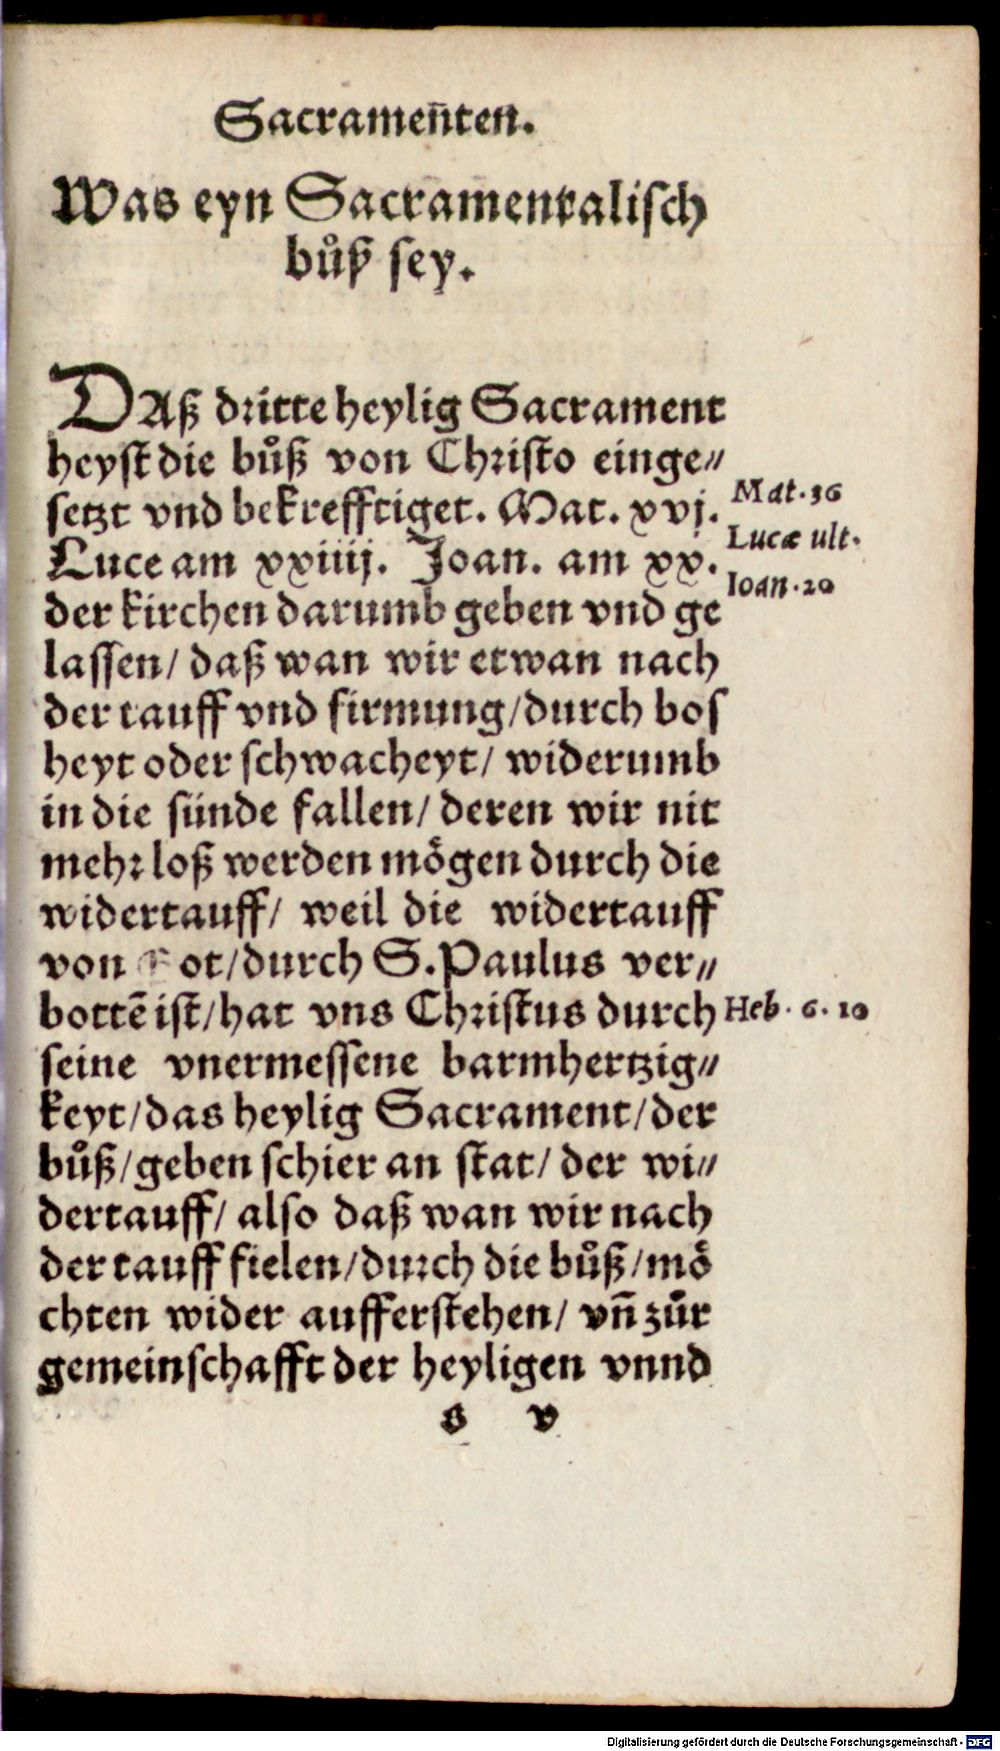 Sacramen̄ten.
Was eyn Sacramentalisch
bůß sey.
DAß dritte heylig Sacrament
heyst die bůß von Christo einge⸗
setzt vnd bekrefftiget. Mat. xvj.
Mat. 16
Luce am xxiiij. Joan. am xx.
Lucæ ult.
Ioan. 20
der kirchen darumb geben vnd ge
lassen/ daß wan wir etwan nach
der tauff vnd firmung/durch bos
heyt oder schwacheyt/ widerumb
in die sünde fallen/ deren wir nit
mehr loß werden mögen durch die
widertauff/ weil die widertauff
von Got/durch S. Paulus ver⸗
bottē ist/hat vns Christus durch
Heb. 6. 10
seine vnermessene barmhertzig⸗
keyt/das heylig Sacrament/der
bůß/geben schier an stat/ der wi⸗
dertauff/ also daß wan wir nach
der tauff fielen/durch die bůß/mö
chten wider aufferstehen/ vn̄ zůr
gemeinschafft der heyligen vnnd
s v
Digitalisierung gefördert durch die Deutsche Forschungsgemeinschaft - DFG